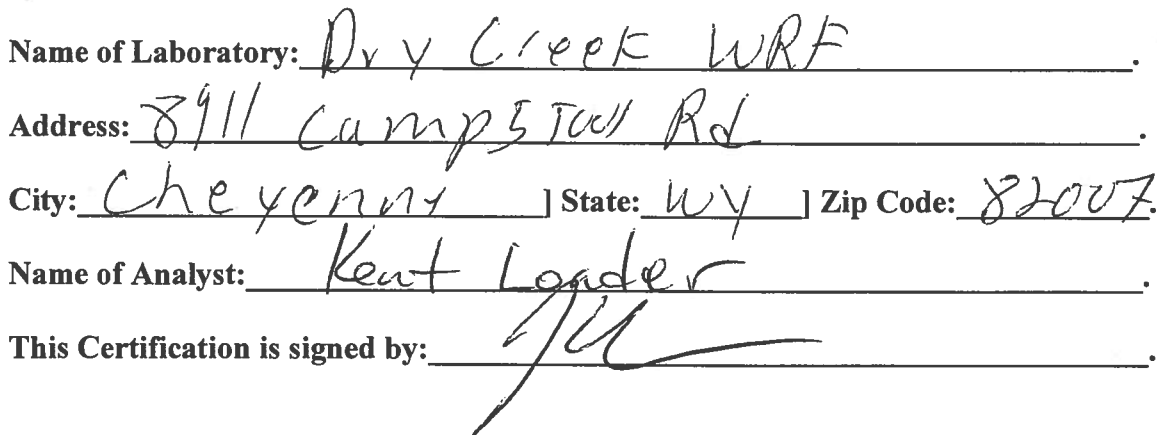 Name of Laboratory: Dry Creek WRF.
Address: 8911 Campstool Rd.
City: Cheyenny ] State: WY ] Zip Code: 82007.
Name of Analyst: Kent Loader.
This Certification is signed by: .